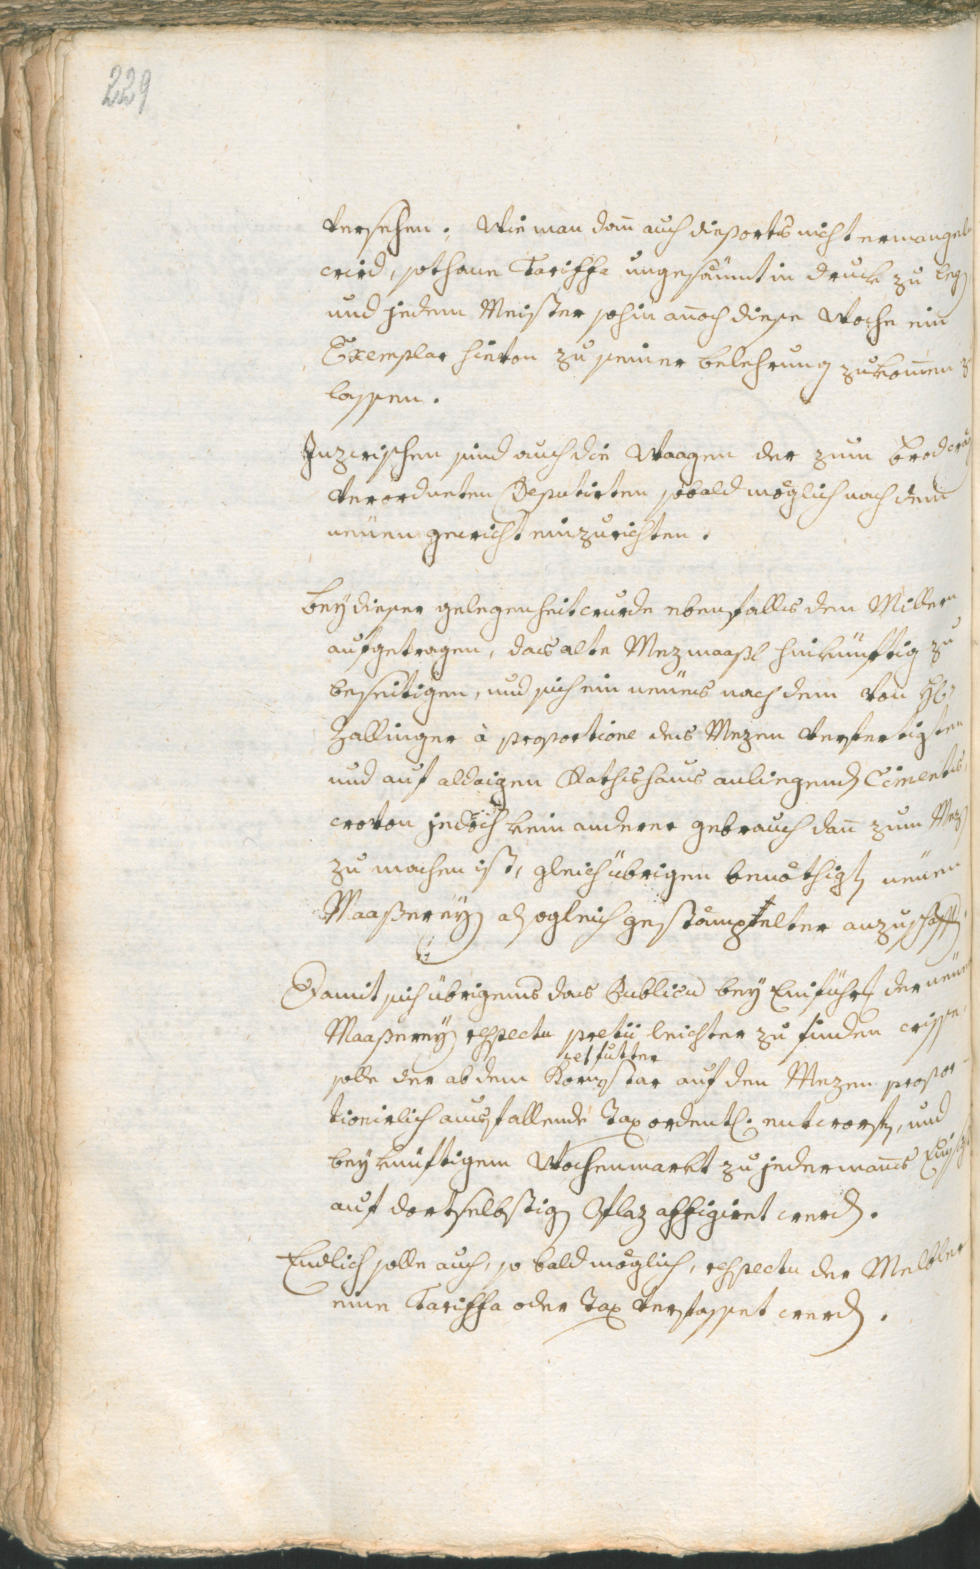 229
versehen. Wie man dann auch diesorts nicht ermangeln
wird, sothane Tariffa ungesäumt in druck zu leg
und jedem Meister sohin annoch diese Woche ein
Exemplar hievon zu seiner belehrung zukommen z
lassen.
Inzwischen sind auch die Waagen der zum brod
verordneten Deputirten sobald möglich nach dem
neuen gewicht einzurichten.
bey dieser gelegenheit wurde ebenfalls den Millern
aufgetragen, das alte Mezmaaßl hinkünftig zu
beseitigen, und sich ein neües nach dem von H:
Zallinger à proportione des Mezen verfertigten
und auf aldaigen Rathshaus anliegend Ciments,
wovon jedoch kein anderer gebrauch dann zum Mez
zu machen ist, gleich übrigen benöthigt neüen
Maaßerey sogleich gestämpfelter anzuschaff
Damit sich übrigens das Publicum bey Einführ der neüen
Maaßerey respectu pretii leichter zu finden wisse,
und futter
solle der ab dem Kornstar auf den Mezen propor
tionirlich ausfallende Tax ordentl. entworf, und
bey künftigem Wochenmarkt zu jedermanns
auf dortselbstig Plaz affigiret werd.
Endlich solle auch, so bald möglich, respectu der Melbler
eine Tariffa oder Tax verfasset werd.